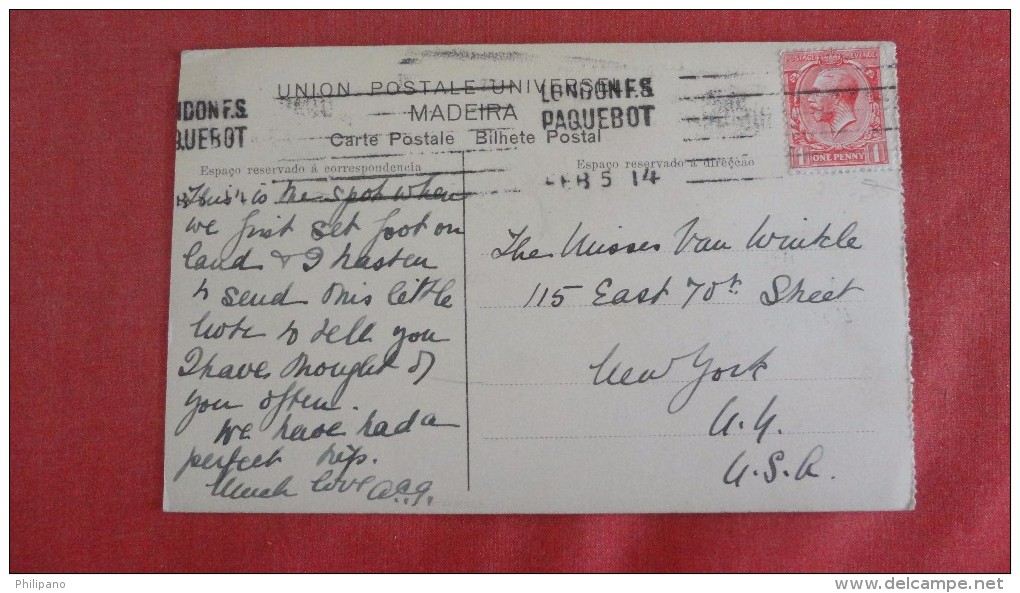 UNION POSTALE UNIVERSELLE
MADEIRA
Carte Postale Bilhete Postal
Espaço reservado á correspondencia
Espaço reservado á direcção
NDON F.S.
QUEBOT
LONDON F.S.
PAQUEBOT
FEB 5 14
POSTAGE REVENUE
ONE PENNY
This is the spot where
we first set foot on
land & I hasten
to send this little
note to tell you
I have thought of
you often.
We have had a
perfect trip.
Much love
The Misses Van Winkle
115 East 70th Street
New York
N.Y.
U.S.A.
Philipano
www.delcampe.net